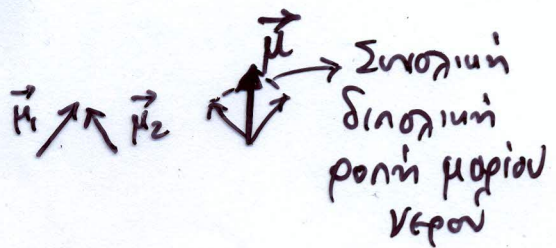 μ⃗
μ⃗₁ μ⃗₂
Συνολική
διπολική
ροπή μορίου
νερού